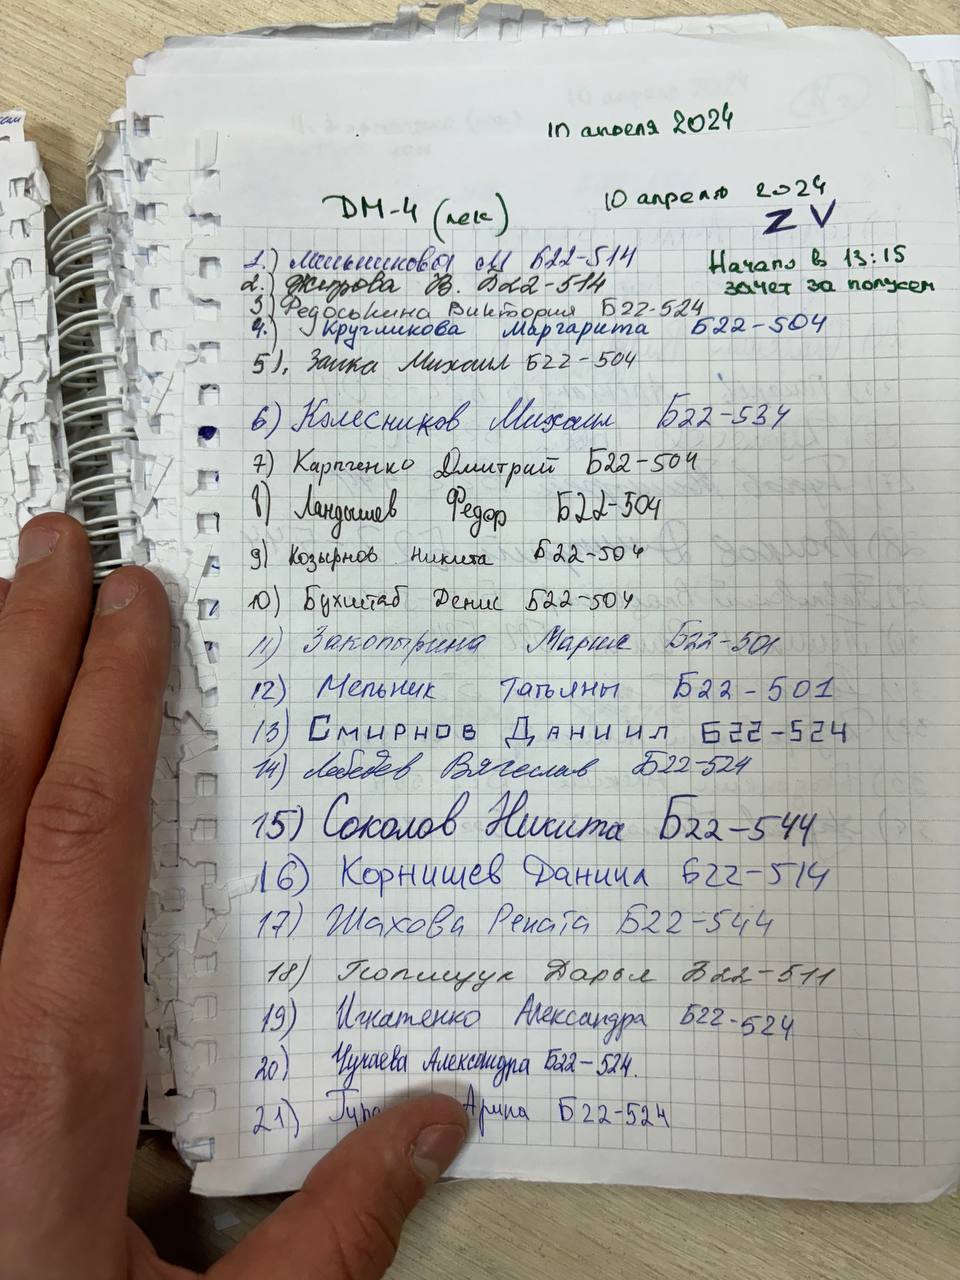 10 апреля 2024
ДМ-4 (лек)
10 апреля 2024
Z V
Начало в 13:15
зачет за полусем
1.) Мельникова М Б22-514
2.) В. Б22-514
3) Федоськина Виктория Б22-524
4.) Кругликова Маргарита Б22-504
5). Заика Михаил Б22-504
6) Колесников Михаил Б22-534
7) Карпченко Дмитрий Б22-504
8) Ландышев Федор Б22-504
9) Козырнов Никита Б22-504
10) Бухштаб Денис Б22-504
11) Закопырина Мария Б22-501
12) Мельник Татьяны Б22-501
13) Смирнов Даниил Б22-524
14) Лебедев Вячеслав Б22-524
15) Соколов Никита Б22-544
16) Корнишев Даниил Б22-514
17) Шахова Рената Б22-544
18) Полищук Дарья Б22-511
19) Игнатенко Александра Б22-524
20) Чучаева Александра Б22-524.
21) Арина Б22-524